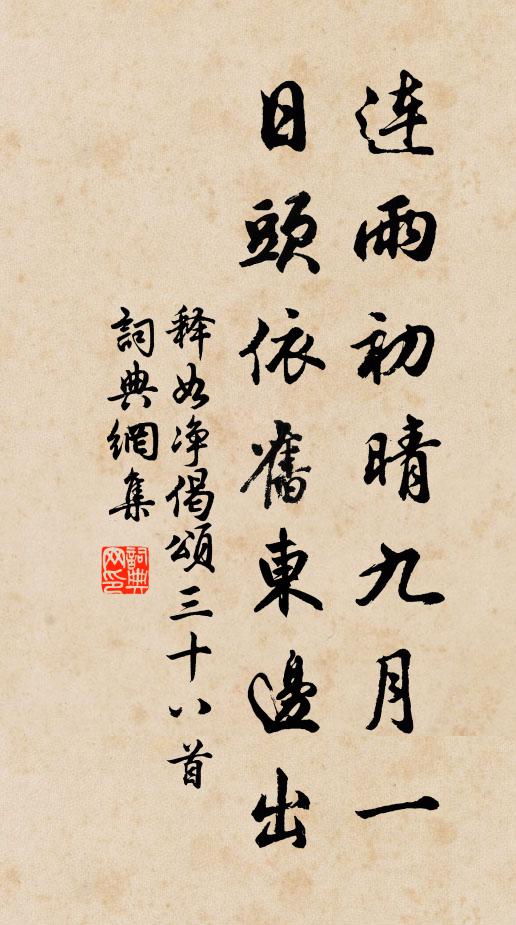 連雨初晴九月一
日頭依舊東邊出
释如净偈頌三十八首
詞典網集
詞典網印